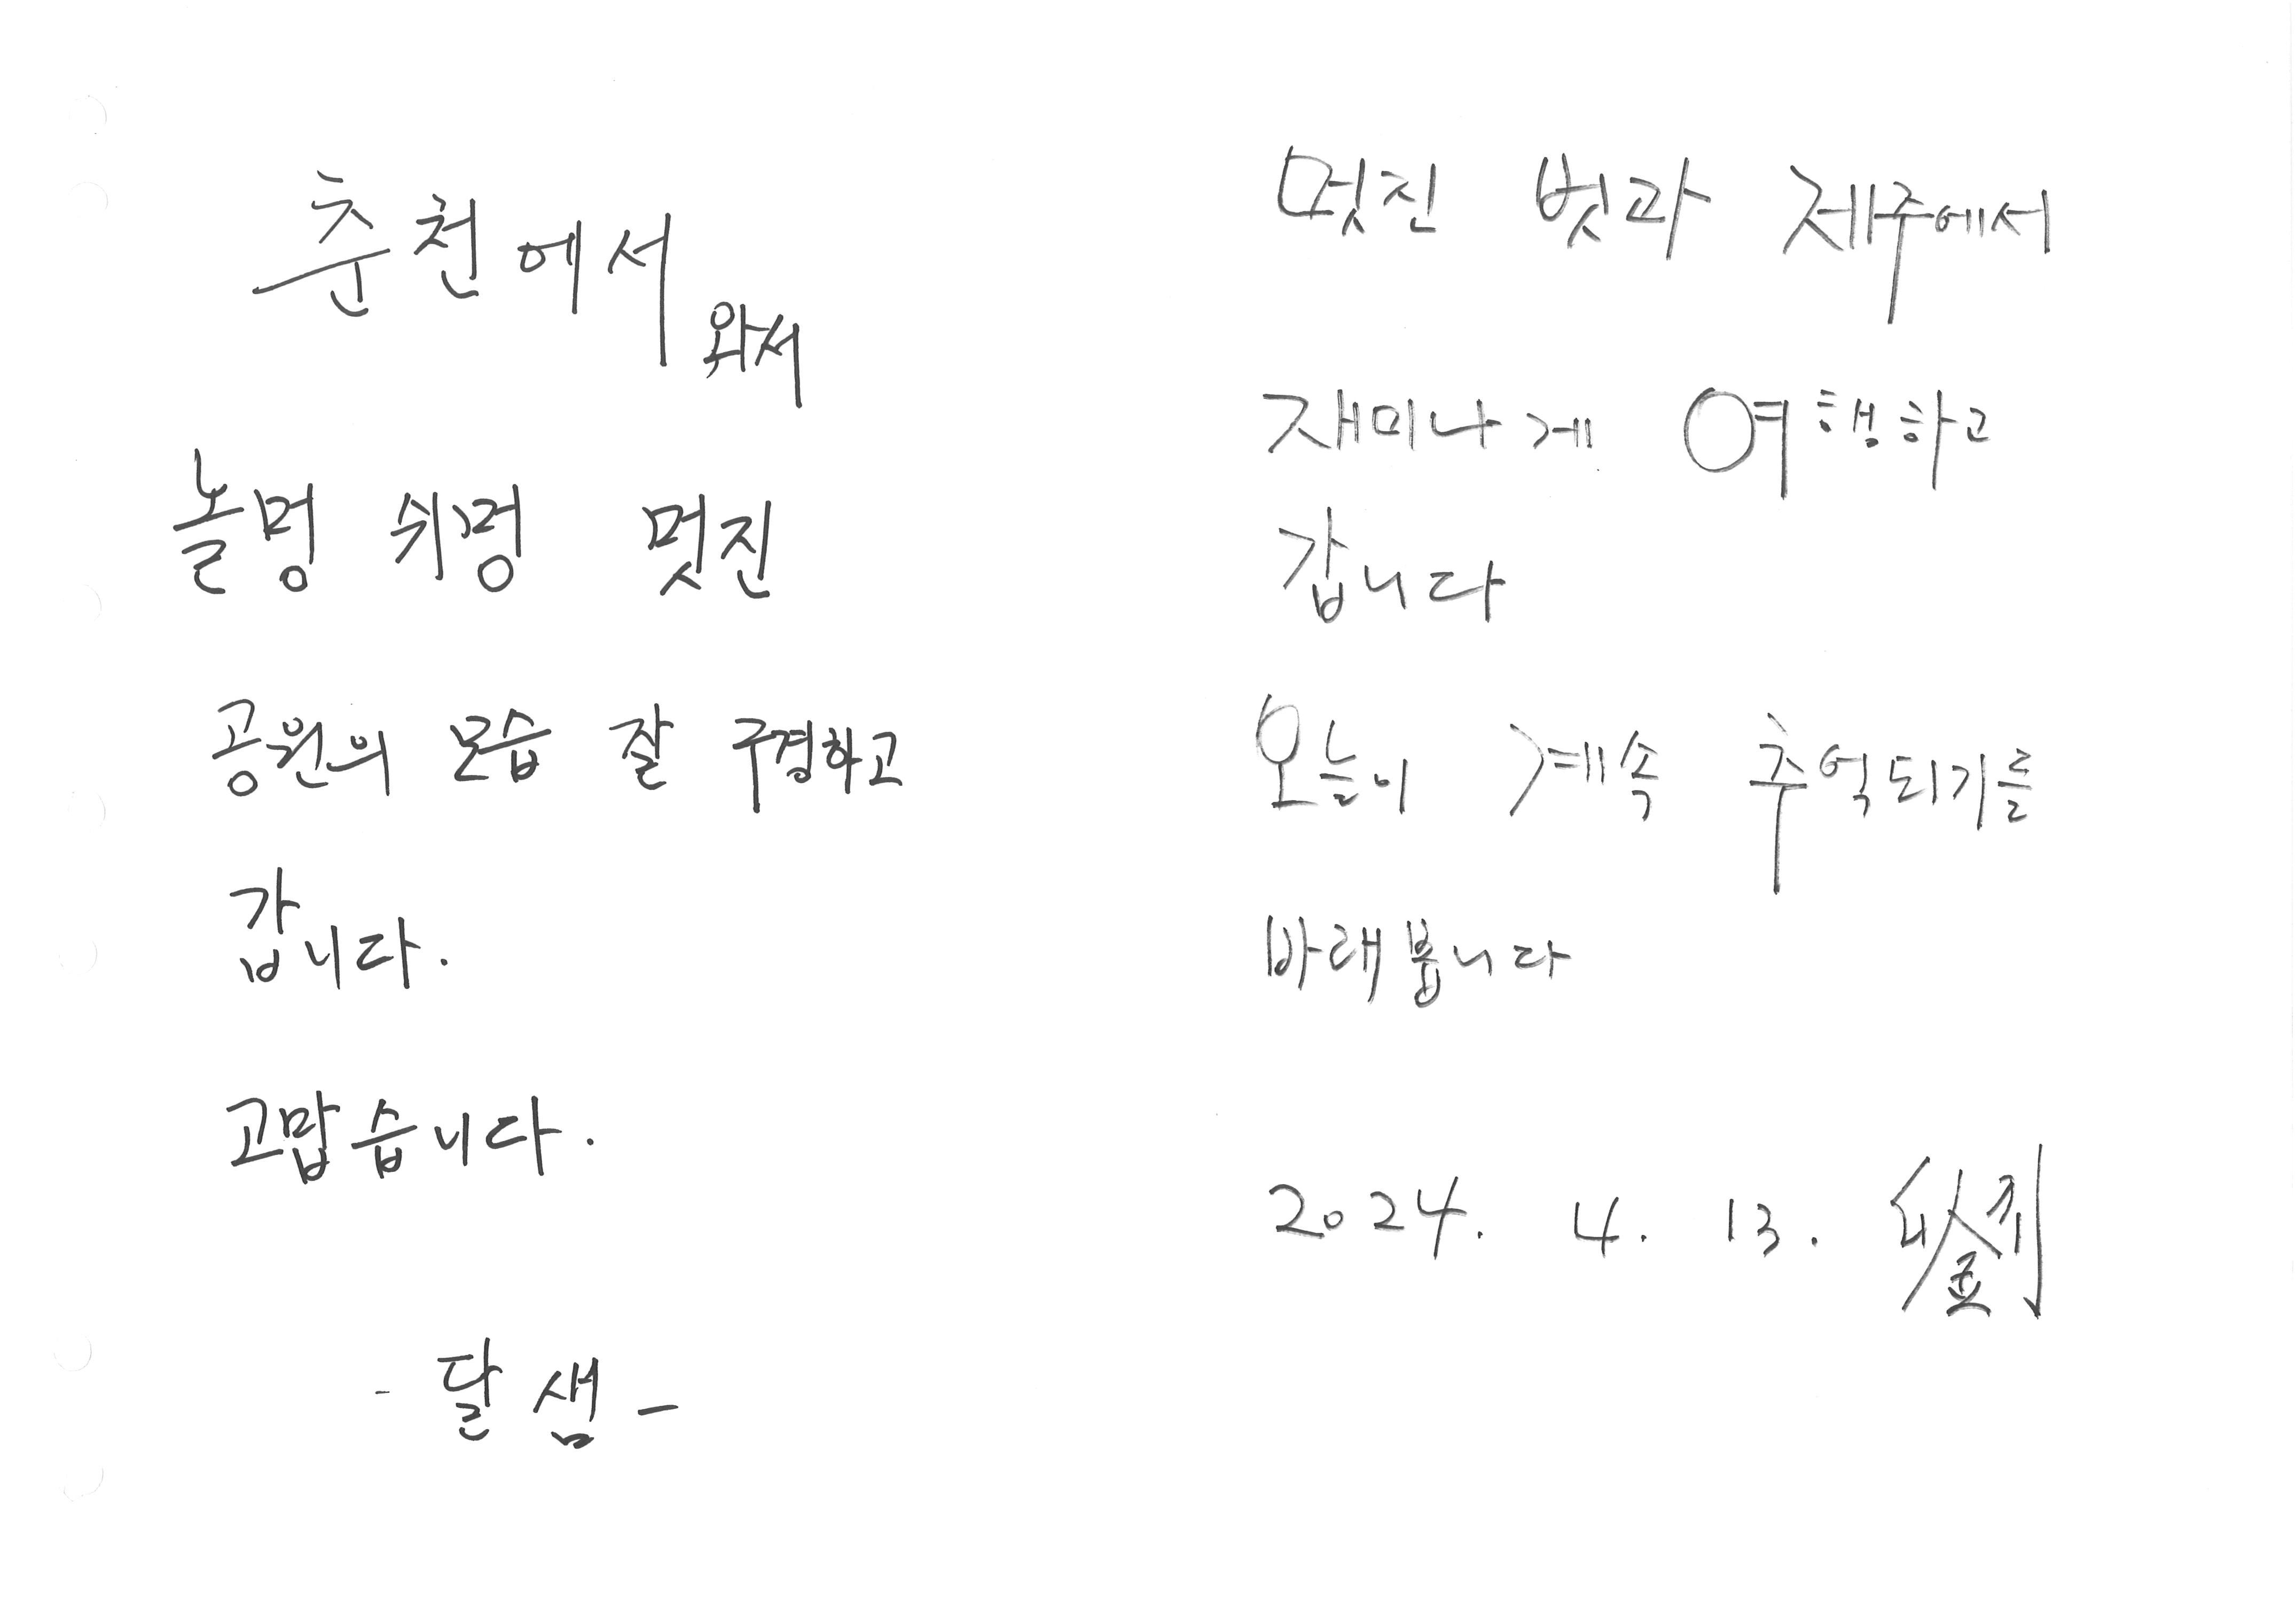 춘천에서 와서
놀멍 쉬멍 멋진
공원의 모습 잘 구경하고
갑니다.
고맙습니다.
- 달샘 -
멋진 벗과 제주에서
재미나게 여행하고
갑니다
오늘이 계속 추억되기를
바래봅니다
2024. 4. 13.